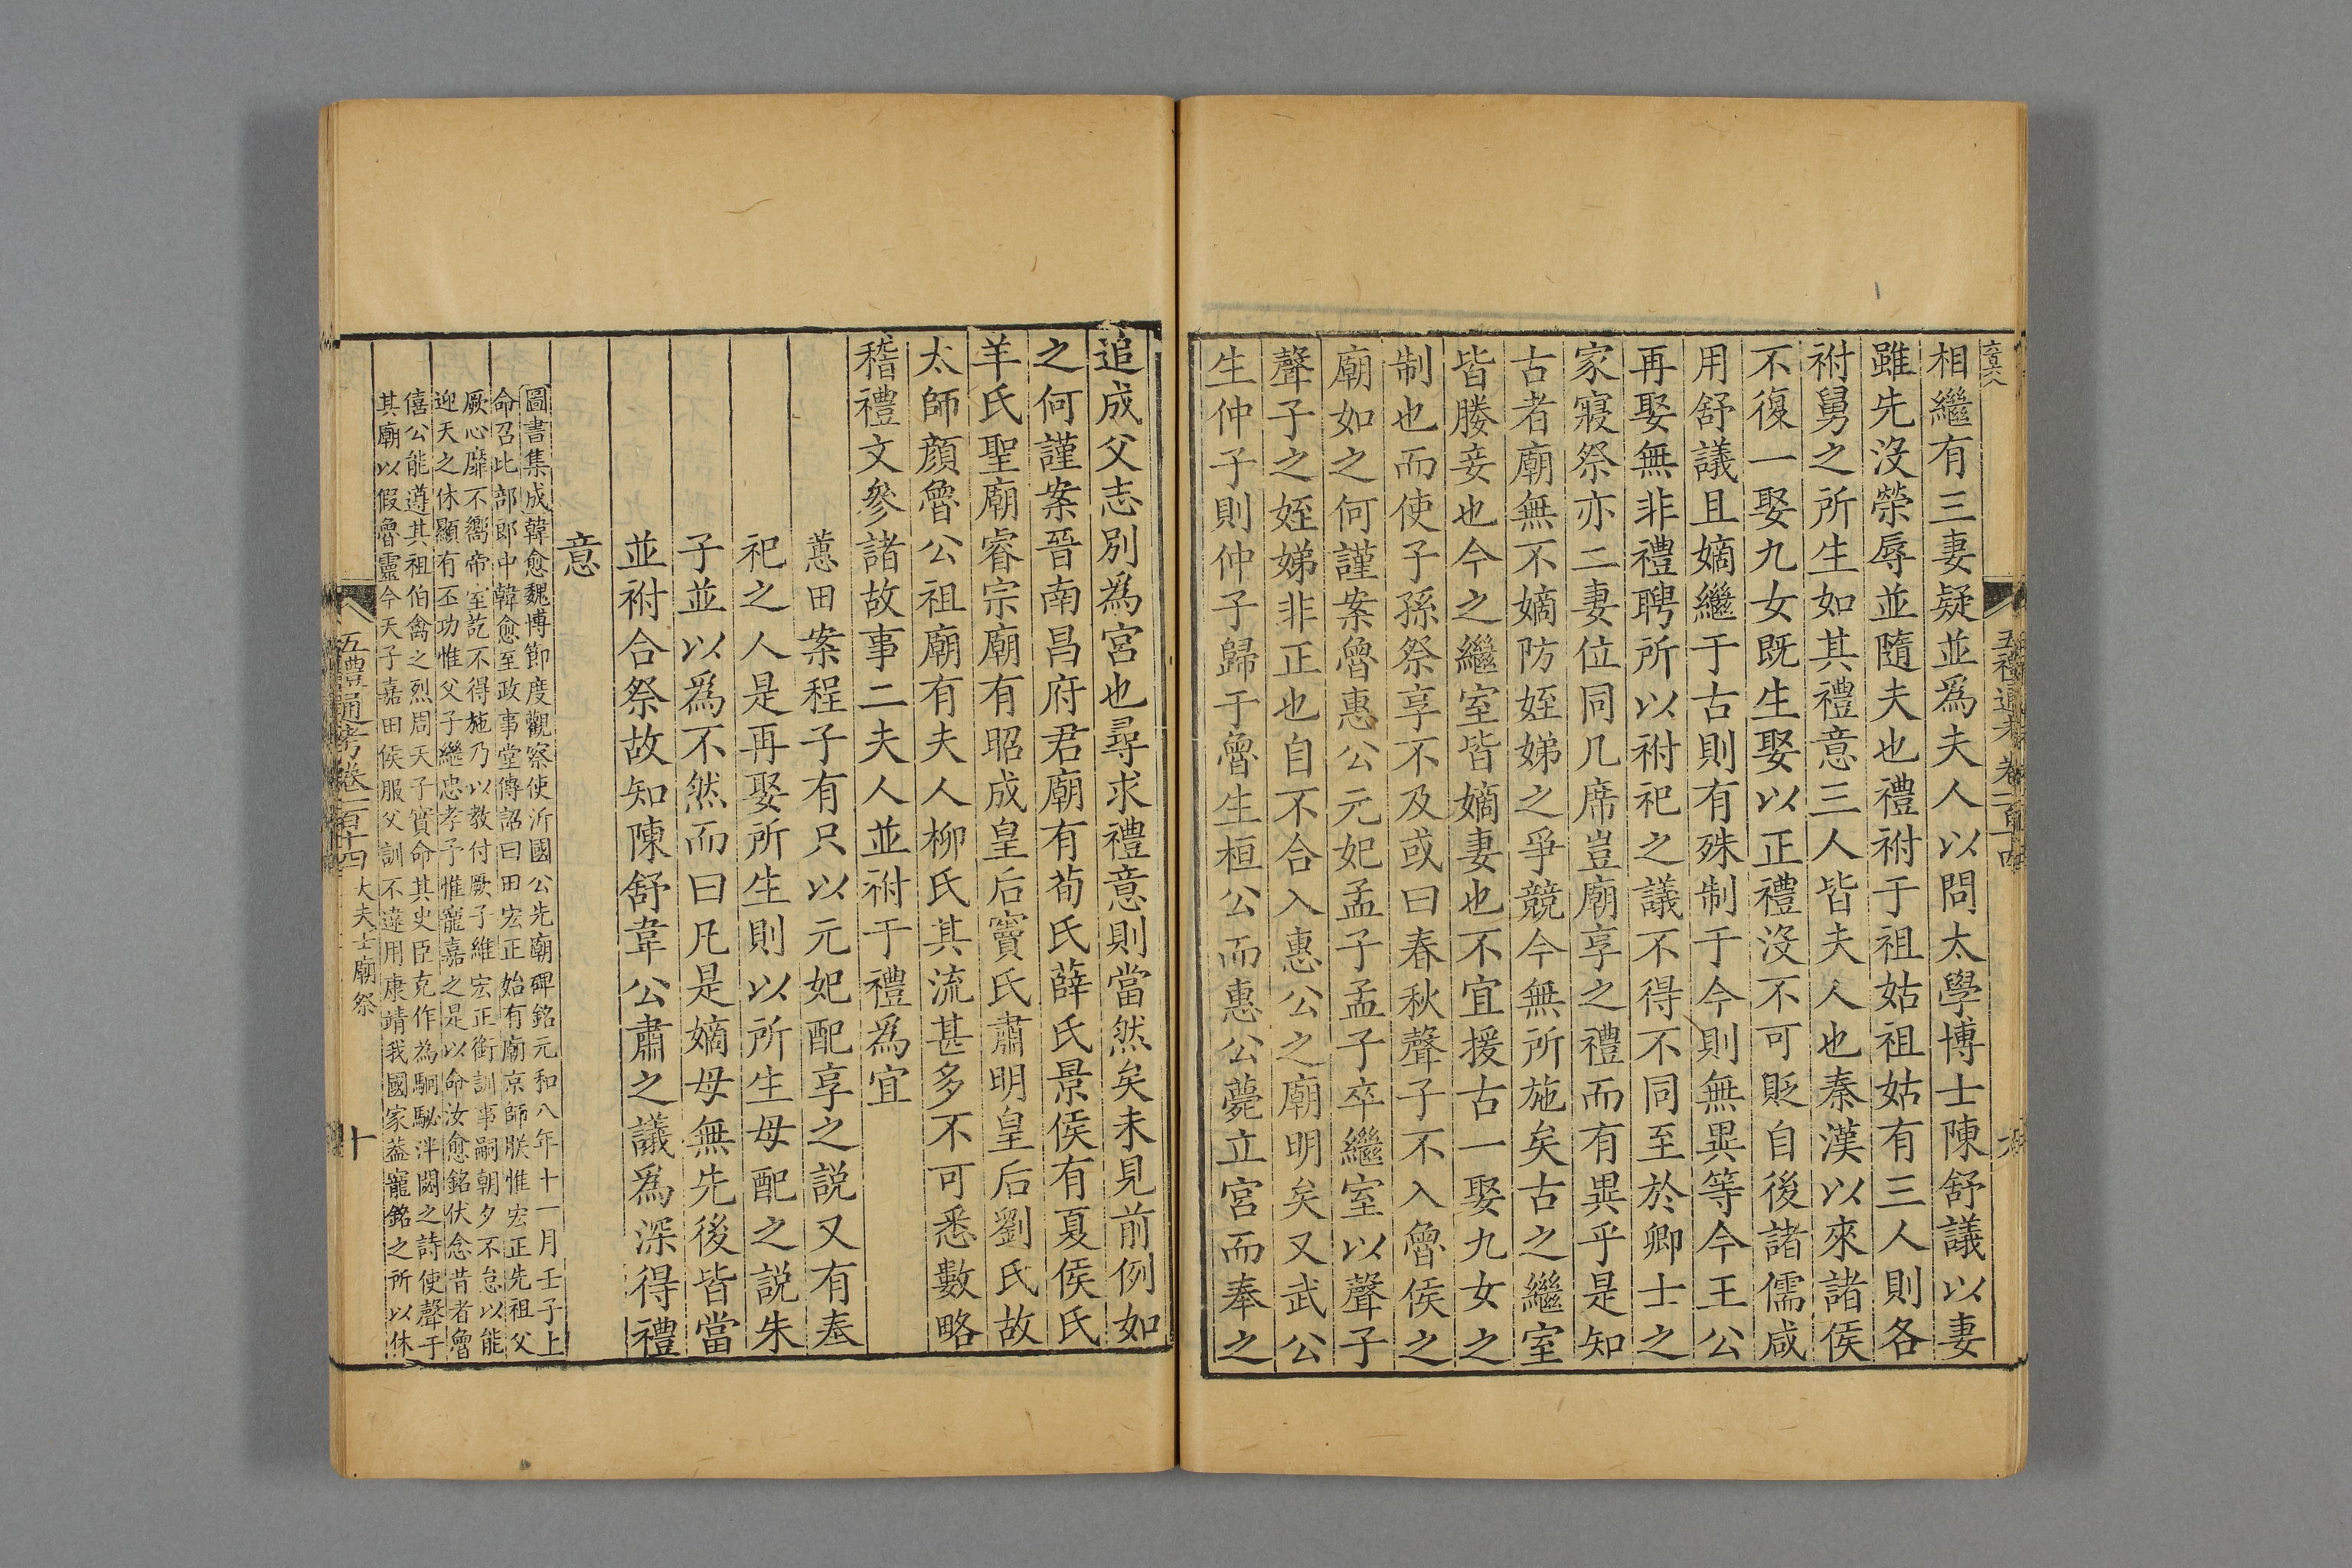 五禮通考 卷一百十四
相繼有三妻疑並爲夫人以問太學博士陳舒議以妻
雖先沒榮辱並隨夫也禮祔于祖姑祖姑有三人則各
祔舅之所生如其禮意三人皆夫人也秦漢以來諸侯
不復一娶九女既生娶以正禮沒不可貶自後諸儒咸
用舒議且嫡繼于古則有殊制于今則無異等今王公
再娶無非禮聘所以祔祀之議不得不同至於卿士之
家寢祭亦二妻位同几席豈廟享之禮而有異乎是知
古者廟無不嫡防姪娣之爭競今無所施矣古之繼室
皆媵妾也今之繼室皆嫡妻也不宜援古一娶九女之
制也而使子孫祭享不及或曰春秋聲子不入魯侯之
廟如之何謹案魯惠公元妃孟子孟子卒繼室以聲子
聲子之姪娣非正也自不合入惠公之廟明矣又武公
生仲子則仲子歸于魯生桓公而惠公薨立宮而奉之
追成父志別爲宮也尋求禮意則當然矣未見前例如
之何謹案晉南昌府君廟有荀氏薛氏景侯有夏侯氏
羊氏聖廟睿宗廟有昭成皇后竇氏肅明皇后劉氏故
太師顏魯公祖廟有夫人柳氏其流甚多不可悉數略
稽禮文參諸故事二夫人並祔于禮爲宜
蕙田案程子有只以元妃配享之説又有奉
祀之人是再娶所生則以所生母配之説朱
子並以爲不然而曰凡是嫡母無先後皆當
並祔合祭故知陳舒韋公肅之議爲深得禮
意
圖書集成韓愈魏博節度觀察使沂國公先廟碑銘元和八年十一月壬子上
命召比部郎中韓愈至政事堂傳詔曰田宏正始有廟京師朕惟宏正先祖父
厥心靡不嚮帝室訖不得施乃以教付厥子維宏正銜訓事嗣朝夕不怠以能
迎天之休顯有丕功惟父子繼忠孝予惟寵嘉之是以命汝愈銘伏念昔者魯
僖公能遵其祖伯禽之烈周天子實命其史臣克作為駉駜泮閟之詩使聲于
其廟以假魯靈今天子嘉田侯服父訓不違用康靖我國家蓋寵銘之所以休
五禮通考卷一百十四 大夫士廟祭 十